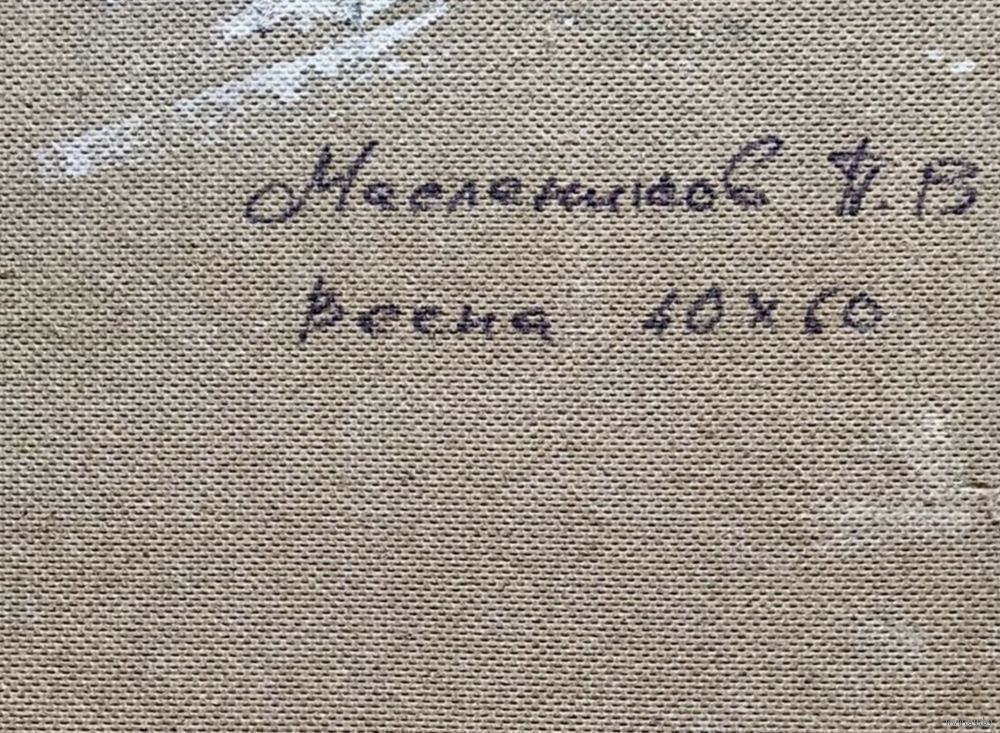 Маслеников П.В
весна 40х60